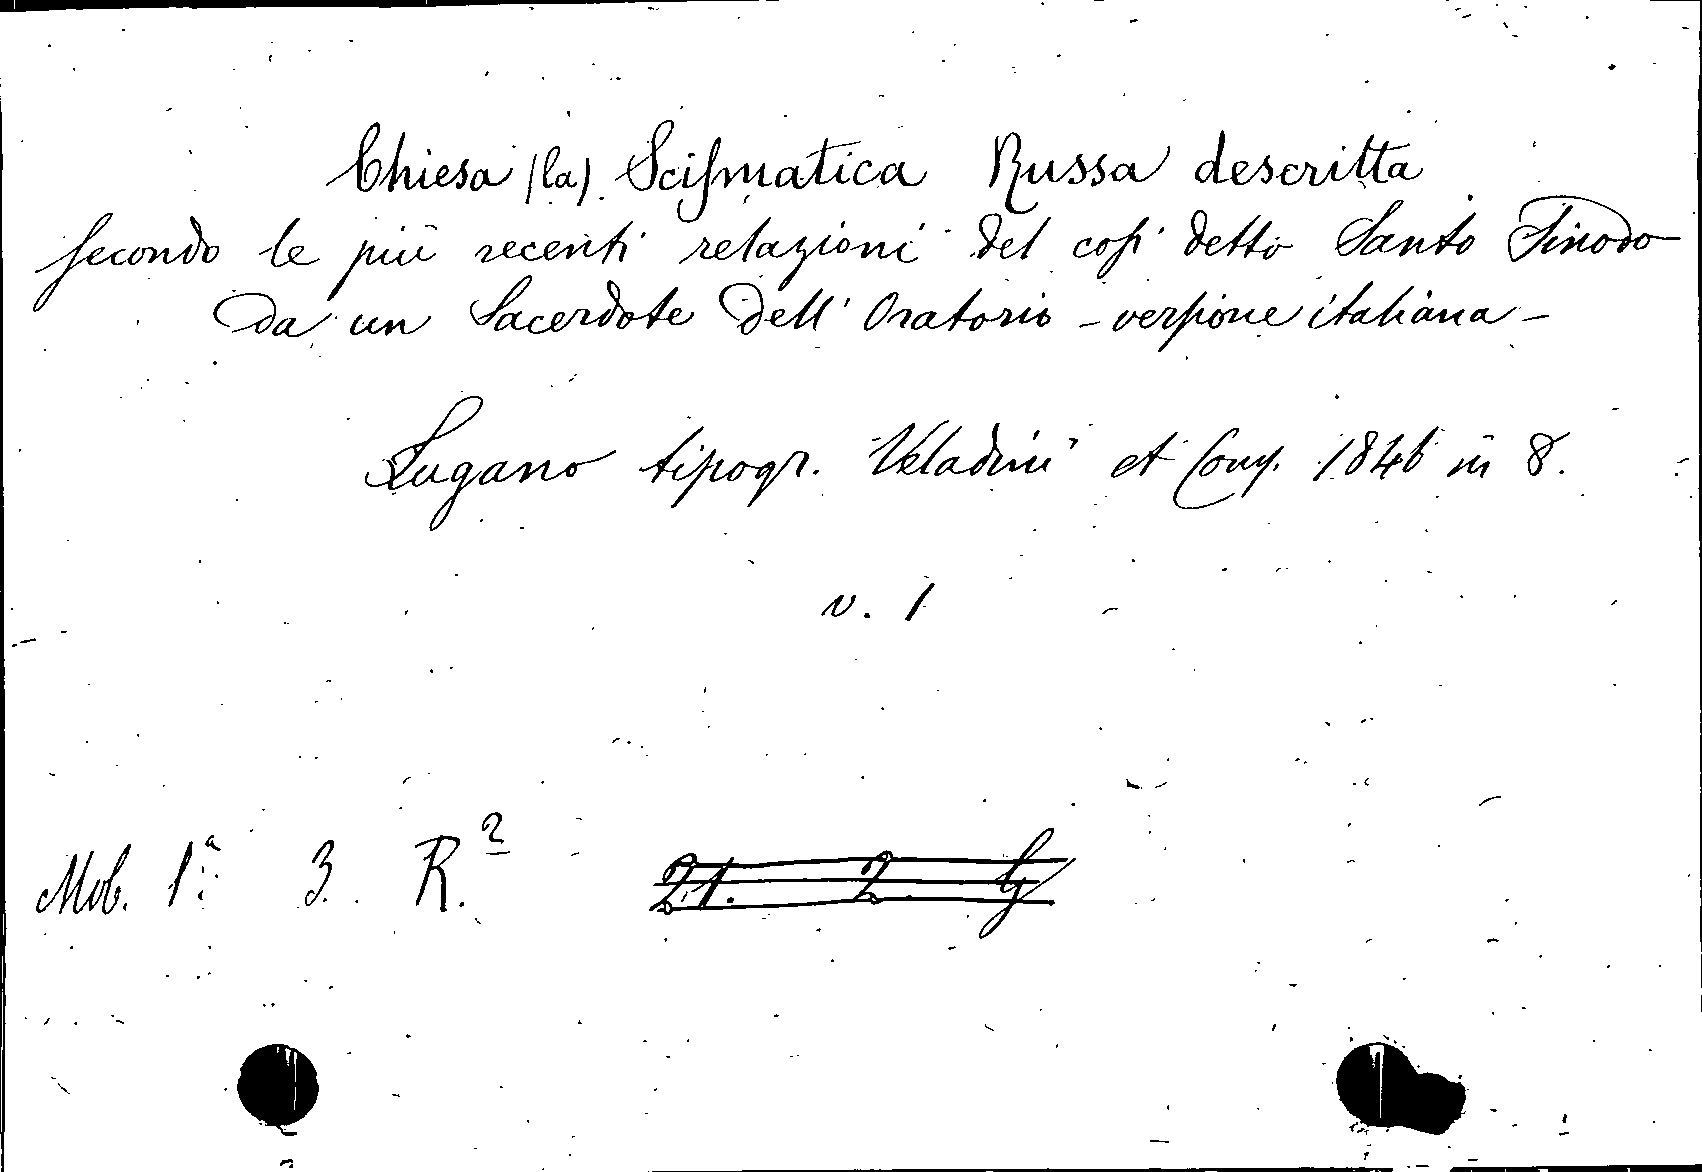 Chiesa (la) Scismatica Russa descritta
secondo le più recenti relazioni del così detto Santo Sinodo
da un Sacerdote dell' Oratorio - versione italiana -
Lugano tipogr. Veladini et Comp. 1846 in 8.
v. 1
Mob. 1.ª 3. R.² 21. 2 G